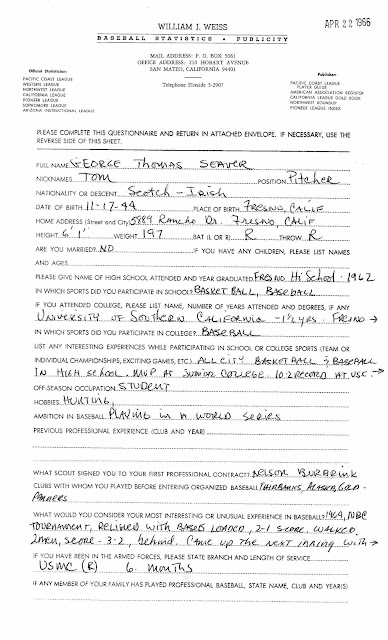 WILLIAM J. WEISS
APR 22 1966
BASEBALL STATISTICS • PUBLICITY
MAIL ADDRESS: P. O. BOX 5061
OFFICE ADDRESS: 210 HOBART AVENUE
SAN MATEO, CALIFORNIA 94401
Telephone FIreside 5-2907
Official Statistician:
PACIFIC COAST LEAGUE
WESTERN LEAGUE
NORTHWEST LEAGUE
CALIFORNIA LEAGUE
PIONEER LEAGUE
SOPHOMORE LEAGUE
ARIZONA INSTRUCTIONAL LEAGUE
Publisher:
PACIFIC COAST LEAGUE
PLAYER GUIDE
AMERICAN ASSOCIATION REGISTER
CALIFORNIA LEAGUE GOLD BOOK
NORTHWEST ROUNDUP
PIONEER LEAGUE INDEX
PLEASE COMPLETE THIS QUESTIONNAIRE AND RETURN IN ATTACHED ENVELOPE. IF NECESSARY, USE THE
REVERSE SIDE OF THIS SHEET.
FULL NAME GEORGE Thomas SEAVER
NICKNAMES TOM POSITION Pitcher
NATIONALITY OR DESCENT Scotch - Irish
DATE OF BIRTH 11-17-44 PLACE OF BIRTH FRESNO, CALIF
HOME ADDRESS (Street and City) 5889 Rancho Dr. Fresno, CALIF
HEIGHT 6' 1" WEIGHT 197 BAT (L OR R) R THROW R
ARE YOU MARRIED? NO IF YOU HAVE ANY CHILDREN, PLEASE LIST NAMES
AND AGES
PLEASE GIVE NAME OF HIGH SCHOOL ATTENDED AND YEAR GRADUATED FRESNO Hi School - 1962
IN WHICH SPORTS DID YOU PARTICIPATE IN SCHOOL? BASKETBALL, BASEBALL
IF YOU ATTENDED COLLEGE, PLEASE LIST NAME, NUMBER OF YEARS ATTENDED AND DEGREES, IF ANY
UNIVERSITY OF SOUTHERN CALIFORNIA - 1½ yrs. FRESNO →
IN WHICH SPORTS DID YOU PARTICIPATE IN COLLEGE? BASEBALL
LIST ANY INTERESTING EXPERIENCES WHILE PARTICIPATING IN SCHOOL OR COLLEGE SPORTS (TEAM OR
INDIVIDUAL CHAMPIONSHIPS, EXCITING GAMES, ETC.) ALL CITY BASKETBALL & BASEBALL
IN HIGH SCHOOL. MVP AT JUNIOR COLLEGE. 10-2 RECORD AT USC →
OFF-SEASON OCCUPATION STUDENT
HOBBIES HUNTING,
AMBITION IN BASEBALL PLAYING IN A WORLD SERIES
PREVIOUS PROFESSIONAL EXPERIENCE (CLUB AND YEAR)
WHAT SCOUT SIGNED YOU TO YOUR FIRST PROFESSIONAL CONTRACT? NELSON BURBRINK
CLUBS WITH WHOM YOU PLAYED BEFORE ENTERING ORGANIZED BASEBALL FAIRBANKS, ALASKA, GOLD-
PANNERS
WHAT WOULD YOU CONSIDER YOUR MOST INTERESTING OR UNUSUAL EXPERIENCE IN BASEBALL? 1964, NBC
TOURNAMENT, RELIEVED WITH BASES LOADED, 2-1 SCORE, WALKED
2 MEN, SCORE - 3-2, behind. Came up the next inning with →
IF YOU HAVE BEEN IN THE ARMED FORCES, PLEASE STATE BRANCH AND LENGTH OF SERVICE
USMC (R) 6. MONTHS
IF ANY MEMBER OF YOUR FAMILY HAS PLAYED PROFESSIONAL BASEBALL, STATE NAME, CLUB AND YEAR(S)